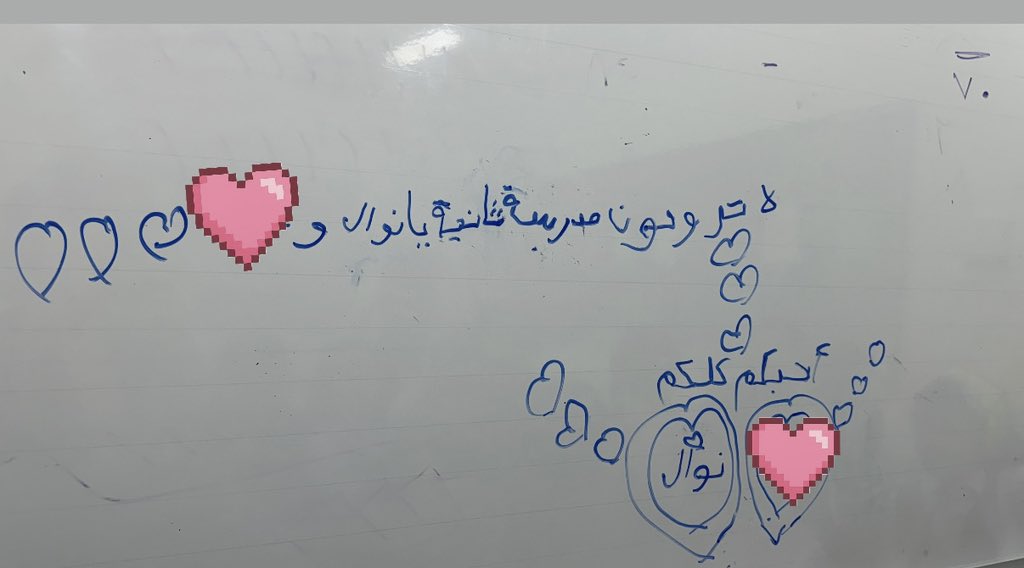 ٧٠
لا تروحون مدرسة ثانية يا نوال و
أحبكم كلكم
نوال